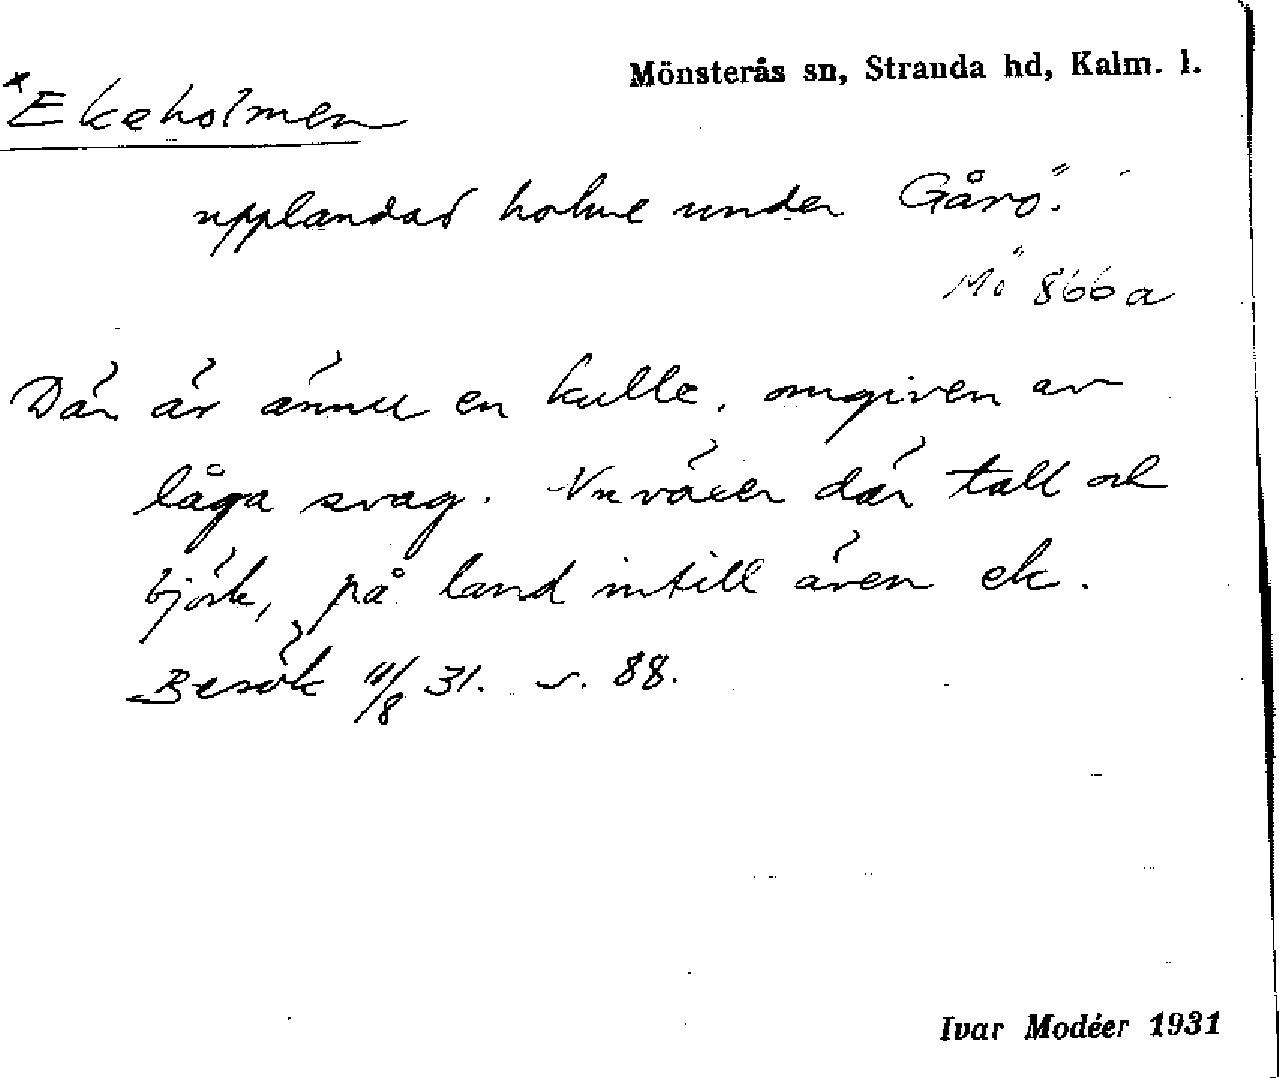 Mönsterås sn, Strauda hd, Kalm. l.
*Ekeholmen
upplandad holme under Gårö.
Mö 866a
Där är ännu en kulle, omgiven av
låga svag. Nu växer där tall och
björk, på land intill även ek.
Besök 11/8 31. s. 88.
Ivar Modéer 1931